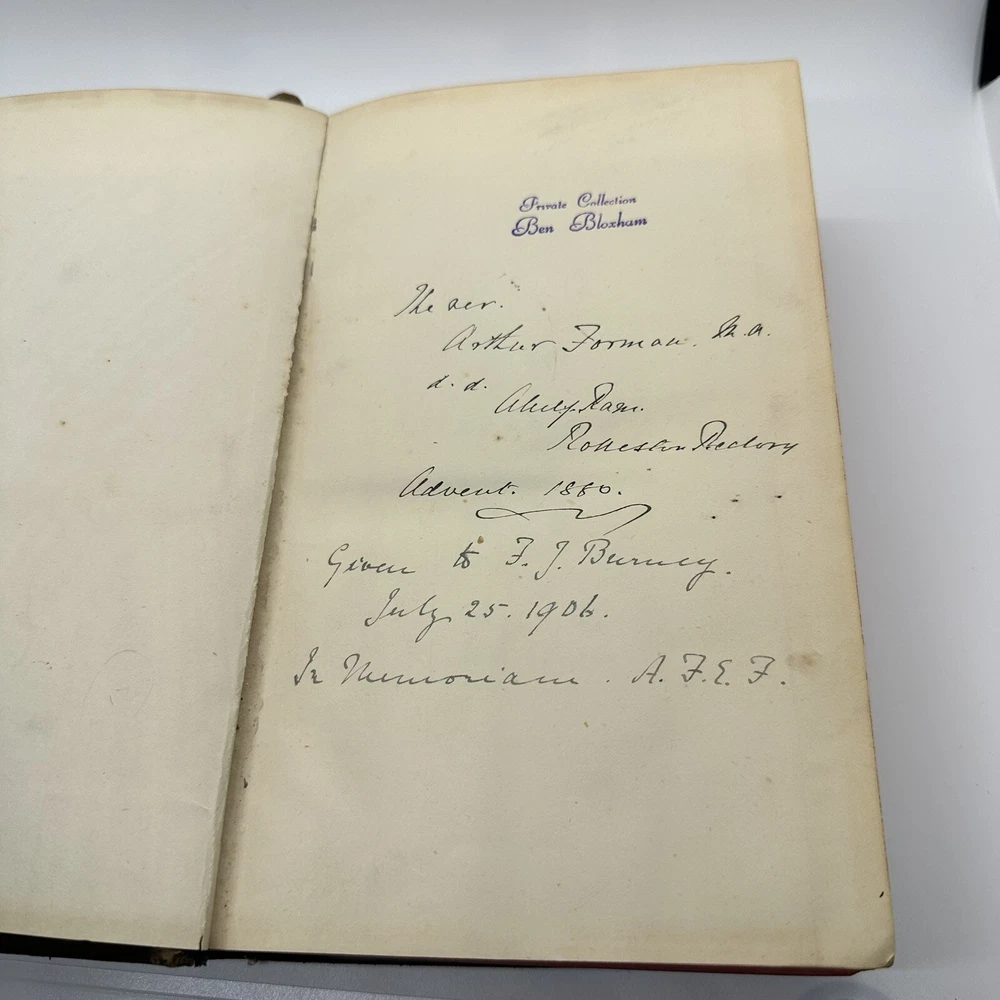 Private Collection
Ben Bloxham
The rev.
Arthur Forman. M.A.
d. d.
Rolleston Rectory
Advent. 1880.
Given to F. J. Burney.
July 25. 1906.
In Memoriam. A. F. E. F.